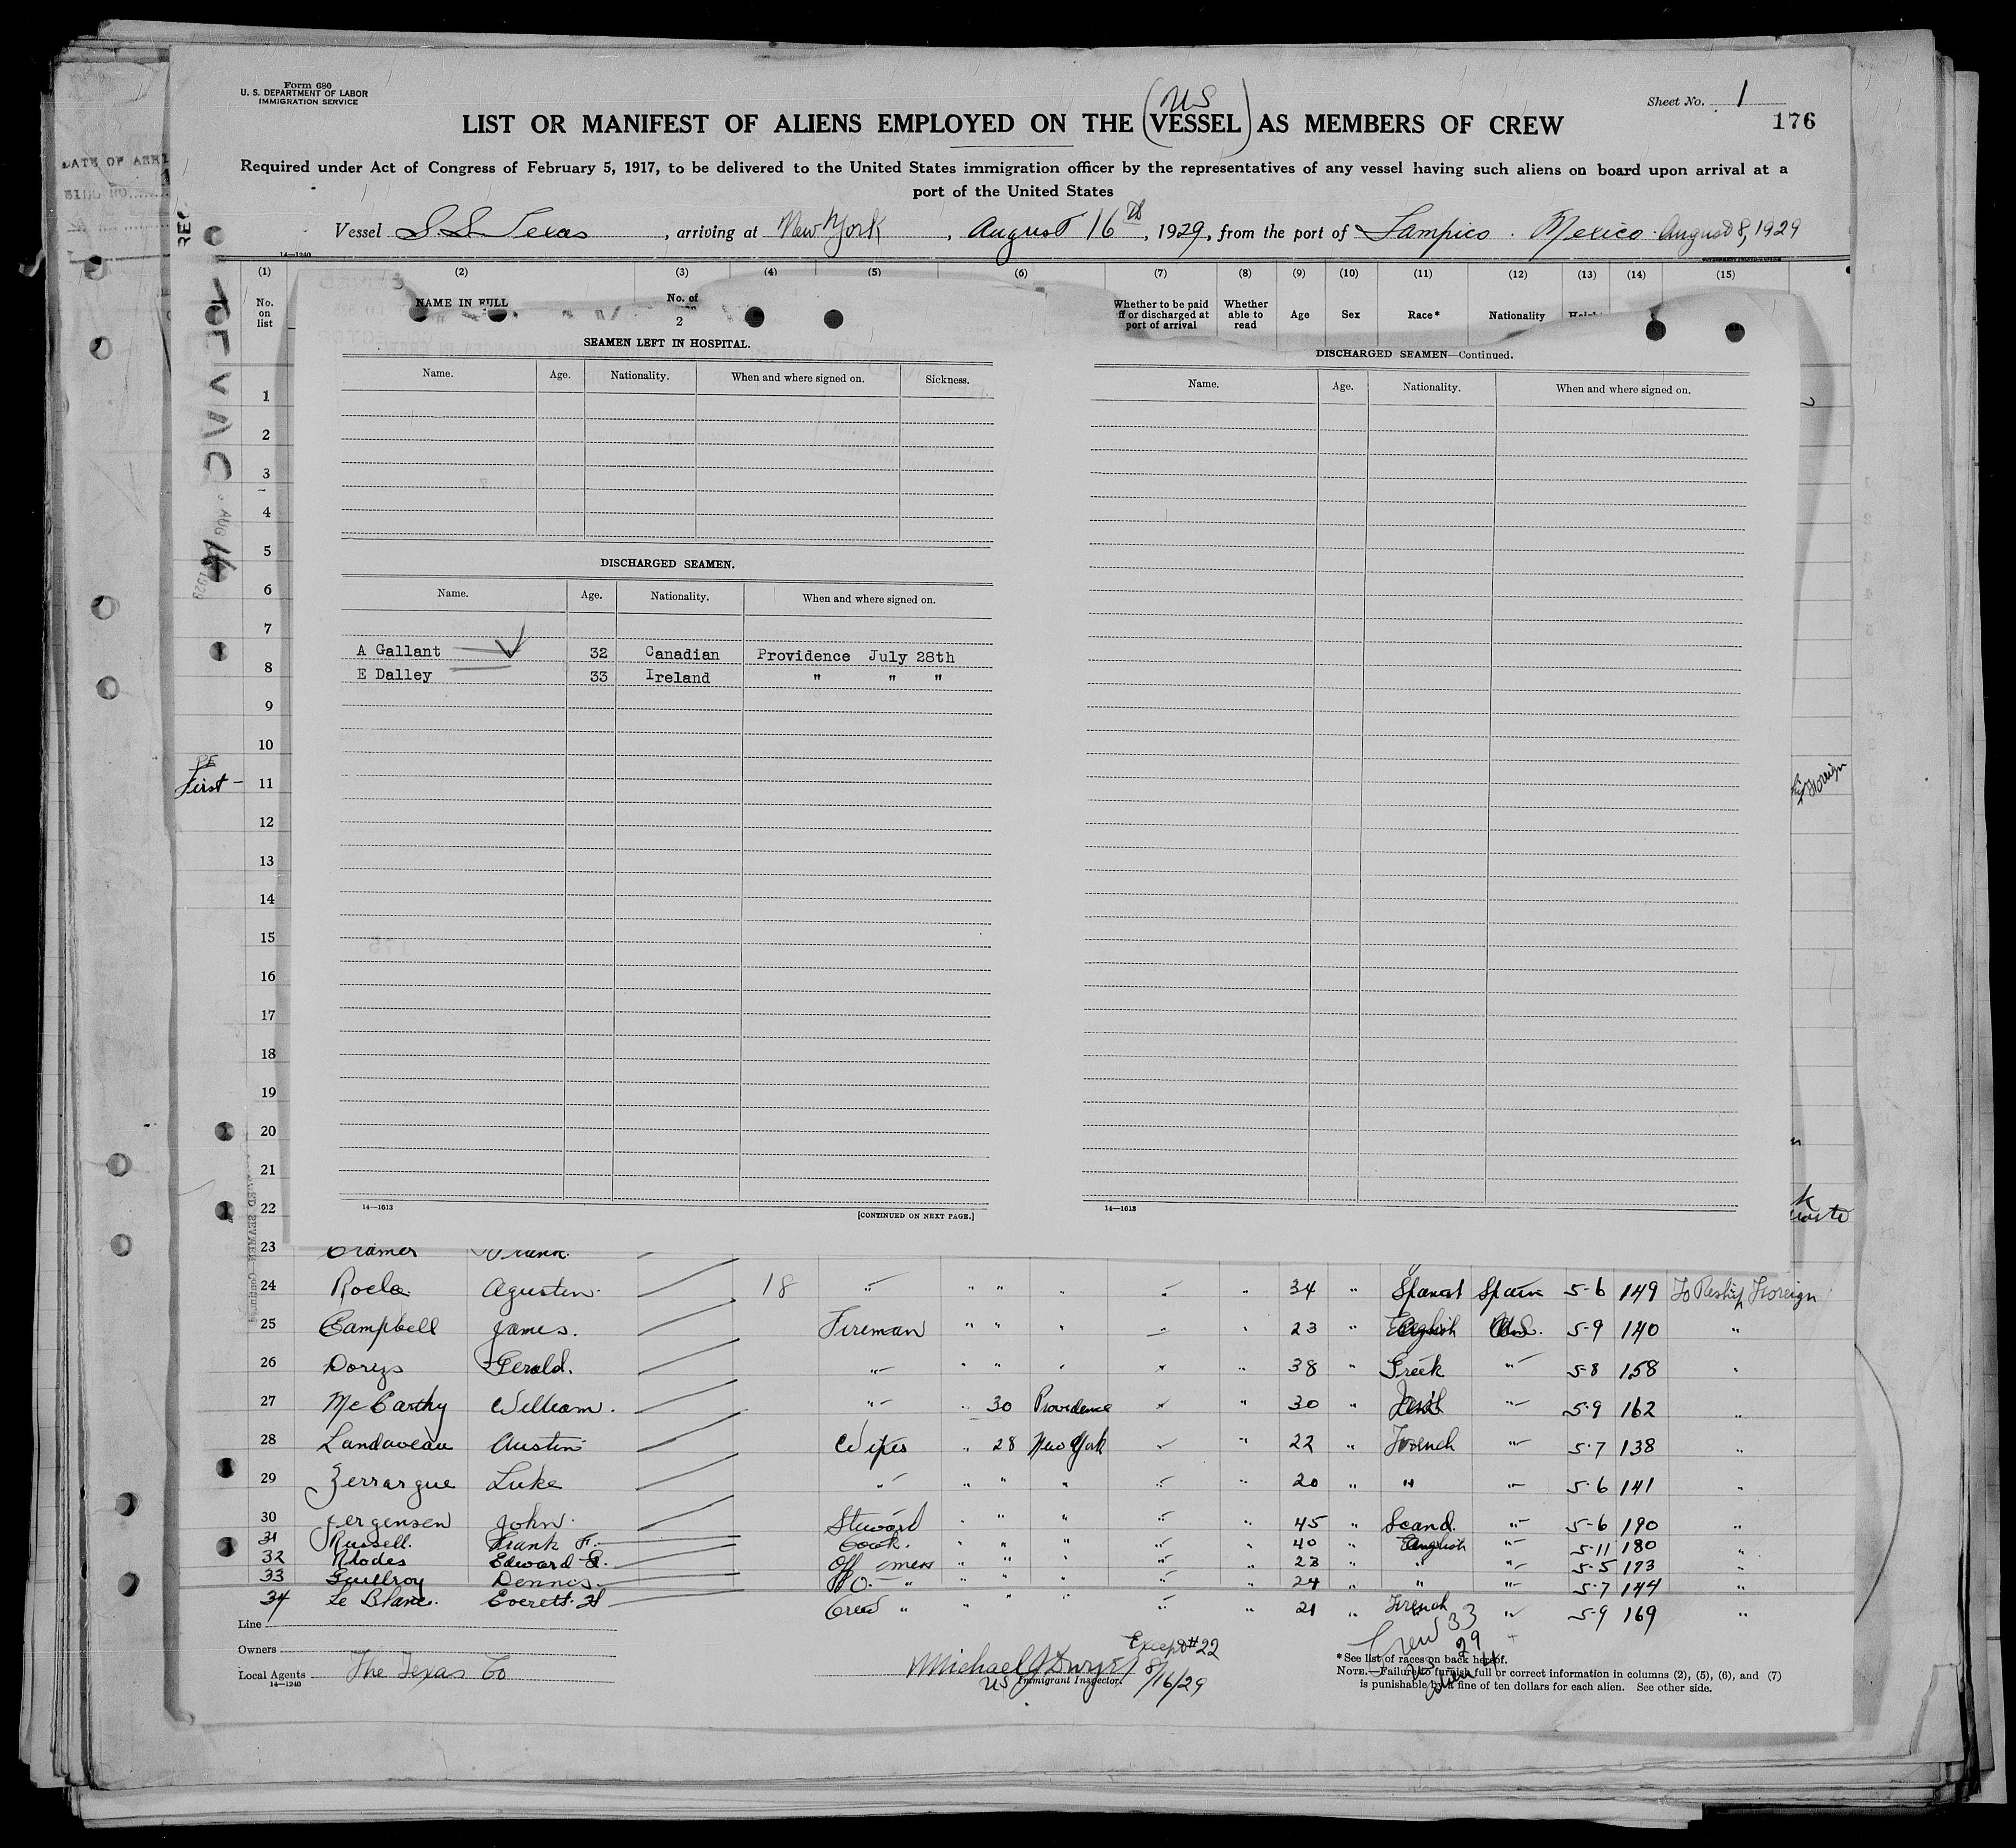 Form 680
U. S. DEPARTMENT OF LABOR
IMMIGRATION SERVICE
Sheet No. 1
176
US
LIST OR MANIFEST OF ALIENS EMPLOYED ON THE (VESSEL) AS MEMBERS OF CREW
Required under Act of Congress of February 5, 1917, to be delivered to the United States immigration officer by the representatives of any vessel having such aliens on board upon arrival at a
port of the United States
Vessel S.S. Texas, arriving at New York, August 16th, 1929, from the port of Tampico. Mexico. August 8, 1929
14—1240
(1) (2) (3) (4) (5) (6) (7) (8) (9) (10) (11) (12) (13) (14) (15)
No. on list NAME IN FULL No. of Whether to be paid off or discharged at port of arrival Whether able to read Age Sex Race* Nationality
2
SEAMEN LEFT IN HOSPITAL.
Name. Age. Nationality. When and where signed on. Sickness.
DISCHARGED SEAMEN.
Name. Age. Nationality. When and where signed on.
A Gallant 32 Canadian Providence July 28th
E Dalley 33 Ireland " " "
14—1613
[CONTINUED ON NEXT PAGE.]
DISCHARGED SEAMEN—Continued.
Name. Age. Nationality. When and where signed on.
14—1613
1
2
3
4
5
6
7
8
9
10
First - 11
12
13
14
15
16
17
18
19
20
21
22
23 Cramer Frank
24 Agustin 18 " " " " " " 34 " Spanish Spain 5-6 149 To Reship Foreign
25 Campbell James. Fireman " " " " " 23 " English U.S. 5-9 140 "
26 Gerald. " " " " " " 38 " Greek " 5-8 158 "
27 McCarthy William. " " 30 Providence " " 30 " " 5-9 162 "
28 Austin Wiper " 28 New York " " 22 " French " 5-7 138 "
29 Luke " " " " " " 20 " " " 5-6 141 "
30 Jergensen John Steward " " " " " 45 " Scand. " 5-6 190 "
31 Russell. Frank F. Cook. " " " " " 40 " English " 5-11 180 "
32 Rhodes Edward Off mess " " " " " 23 " " " 5-5 173 "
33 Guillroy Dennis P.O. " " " " " " 24 " " " 5-7 144 "
34 Le Blanc. Everett. H Crew " " " " " " 21 " French " 5-9 169 "
Line
Owners
Local Agents The Texas Co
14—1240
Except #22
Michael J Dwyer 8/16/29
US Immigrant Inspector.
Crew 33
US 29
alien 4
* See list of races on back hereof.
NOTE.—Failure to furnish full or correct information in columns (2), (5), (6), and (7)
is punishable by a fine of ten dollars for each alien. See other side.